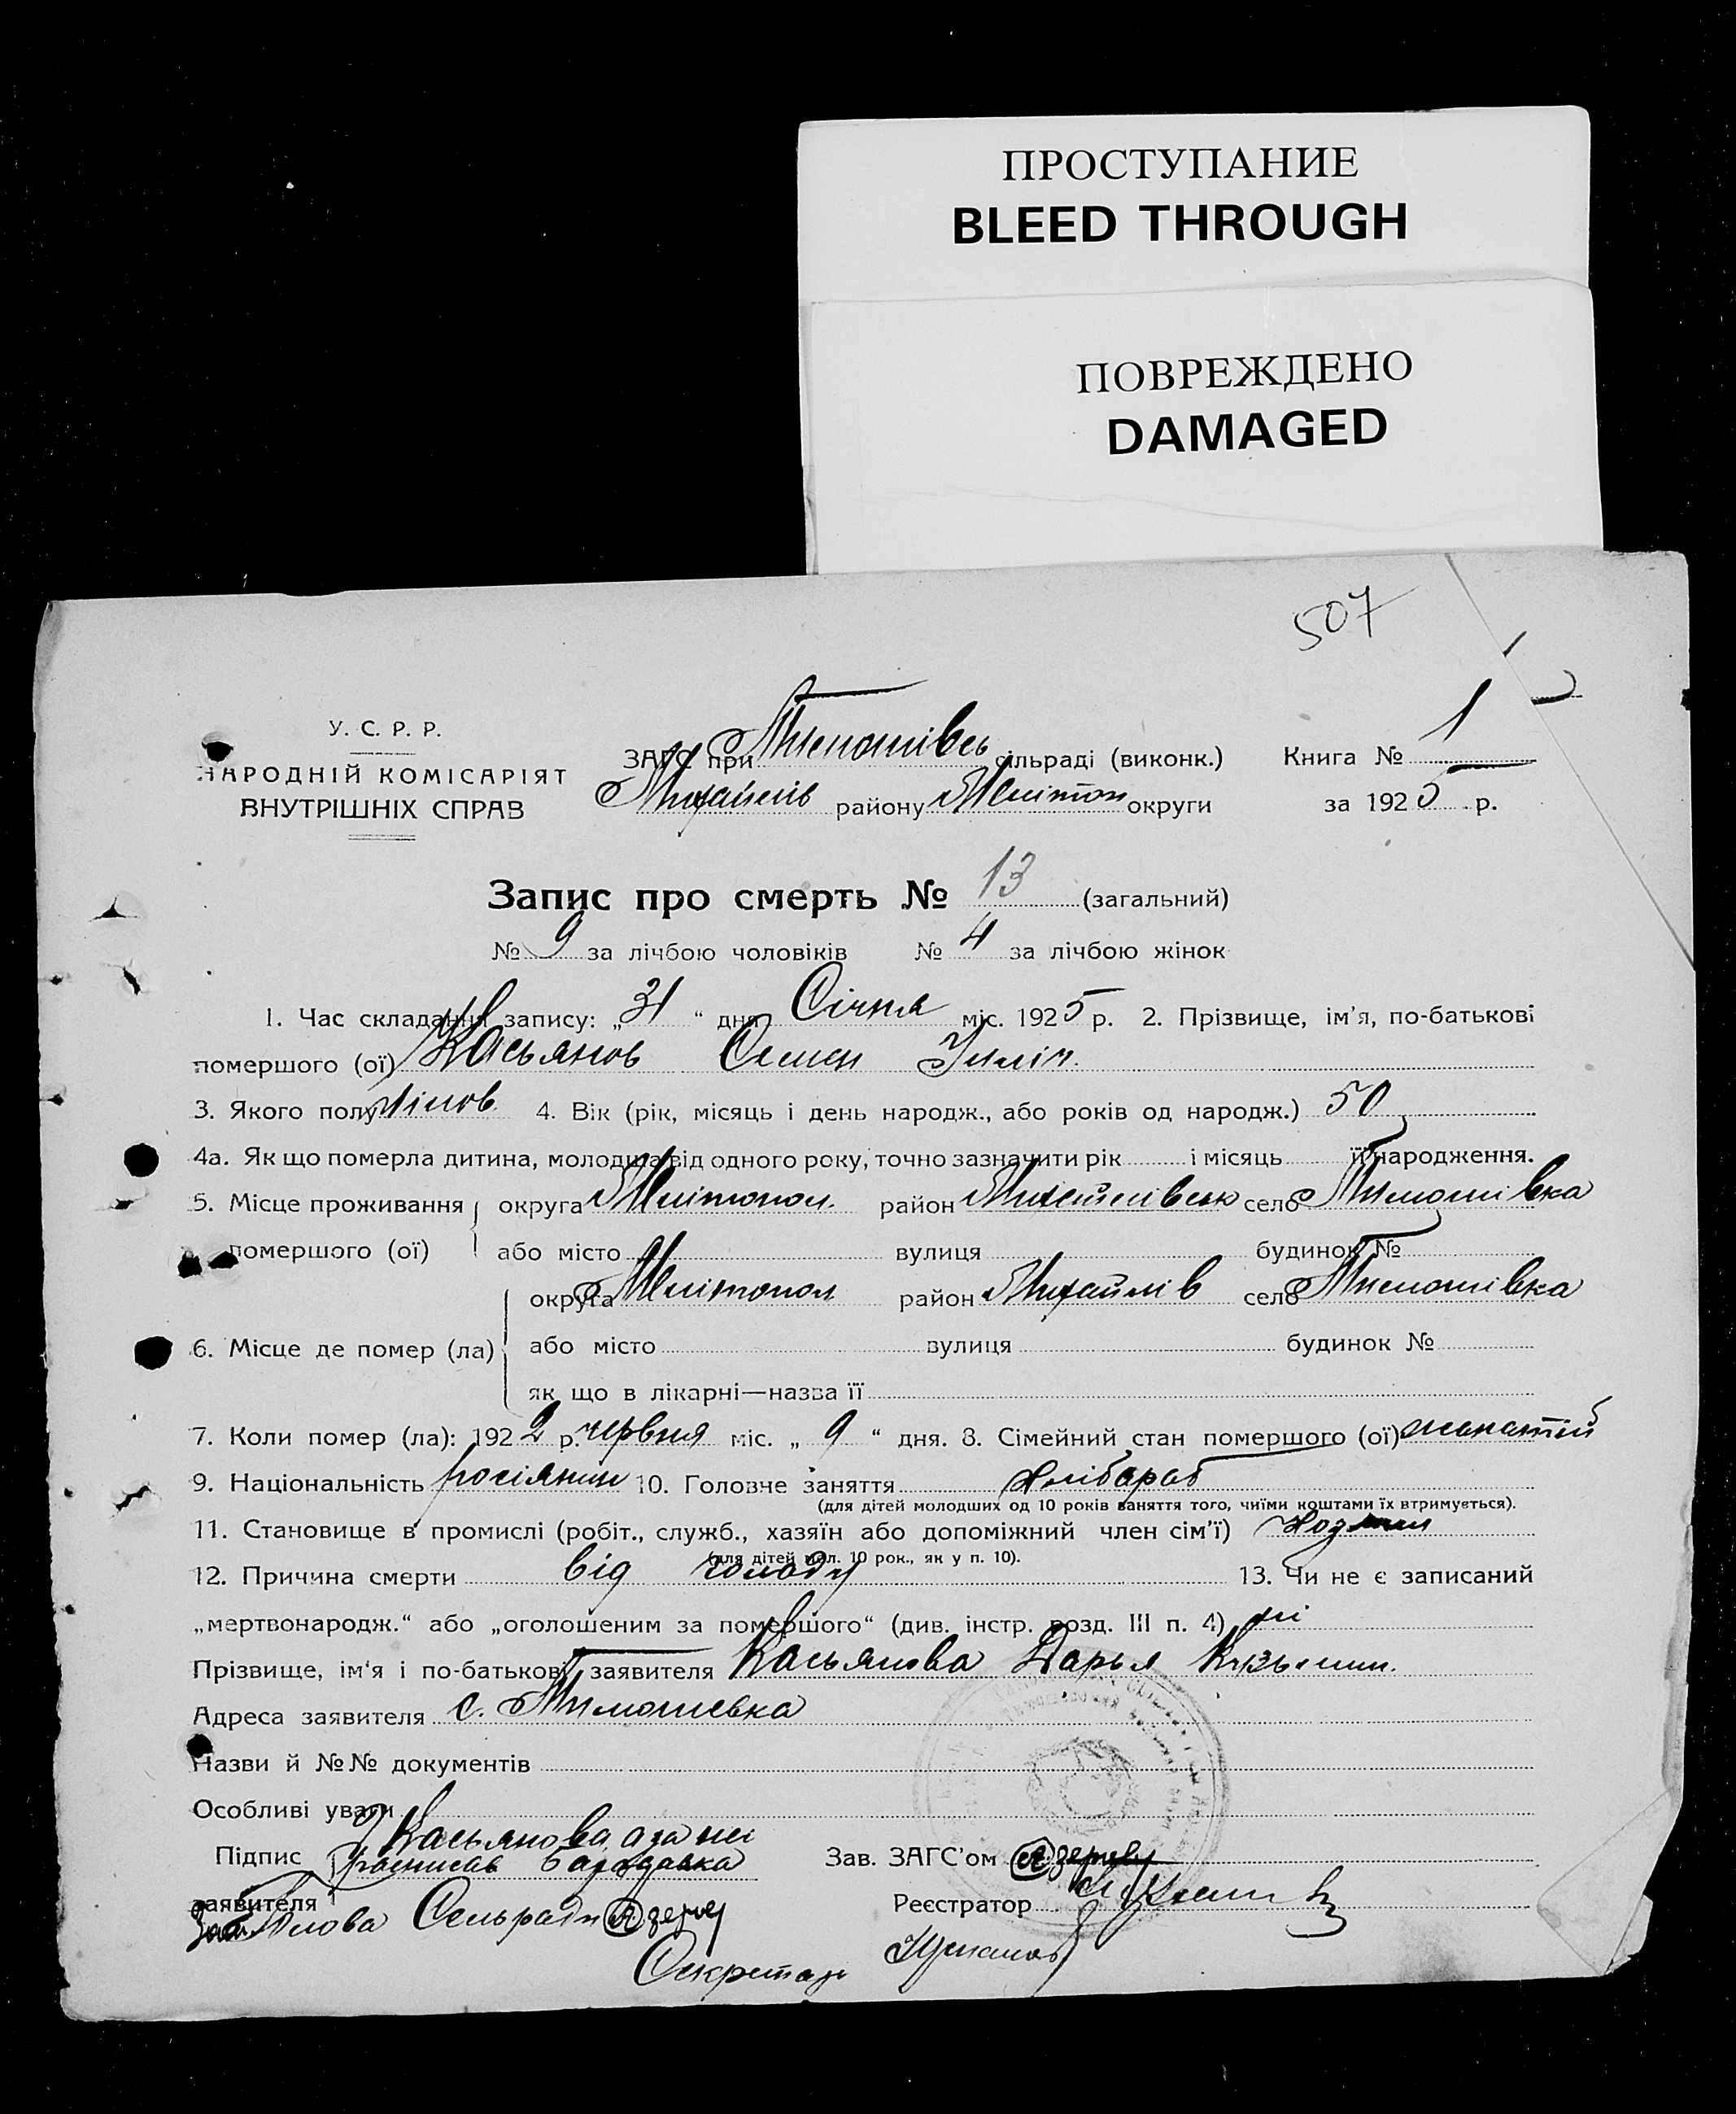 ПРОСТУПАНИЕ
BLEED THROUGH
ПОВРЕЖДЕНО
DAMAGED
507
1
У. С. Р. Р.
НАРОДНІЙ КОМІСАРІЯТ
ВНУТРІШНІХ СПРАВ
ЗАГС при Тимошівсь сільраді (виконк.) Книга № 1
Михайлів району Мелітоп округи за 1925 р.
Запис про смерть № 13 (загальний)
№ 9 за лічбою чоловіків № 4 за лічбою жінок
1. Час складання запису: „31“ дня Січня міс. 1925 р. 2. Прізвище, ім’я, по-батькові
помершого (ої) Касьянов Семен Ілліч.
3. Якого полу чілов. 4. Вік (рік, місяць і день народж., або років од народж.) 50
4а. Як що померла дитина, молодша від одного року, точно зазначити рік і місяць її народження.
5. Місце проживання округа Мелітопол. район Михайлівськ село Тимошівка
помершого (ої) або місто вулиця будинок №
округа Мелітопол район Михайлів село Тимошівка
6. Місце де помер (ла) або місто вулиця будинок №
як що в лікарні—назва її
7. Коли помер (ла): 1922 р. червня міс. „9“ дня. 8. Сімейний стан помершого (ої) жонатий
9. Національність росіянин 10. Головне заняття хлібороб
(для дітей молодших од 10 років заняття того, чиїми коштами їх втримується).
11. Становище в промислі (робіт., служб., хазяїн або допоміжний член сім’ї)
(для дітей мол. 10 рок., як у п. 10).
12. Причина смерти від голоду 13. Чи не є записаний
„мертвонародж.“ або „оголошеним за помершого“ (див. інстр. розд. III п. 4) ні
Прізвище, ім’я і по-батькові заявителя Касьянова Дарья Кузьмин.
Адреса заявителя с. Тимошевка
Назви й №№ документів
Особливі уваги
Касьянова а за неї
Підпис росписав Зав. ЗАГС’ом
заявителя Реєстратор
Голова Сельради
Секретар